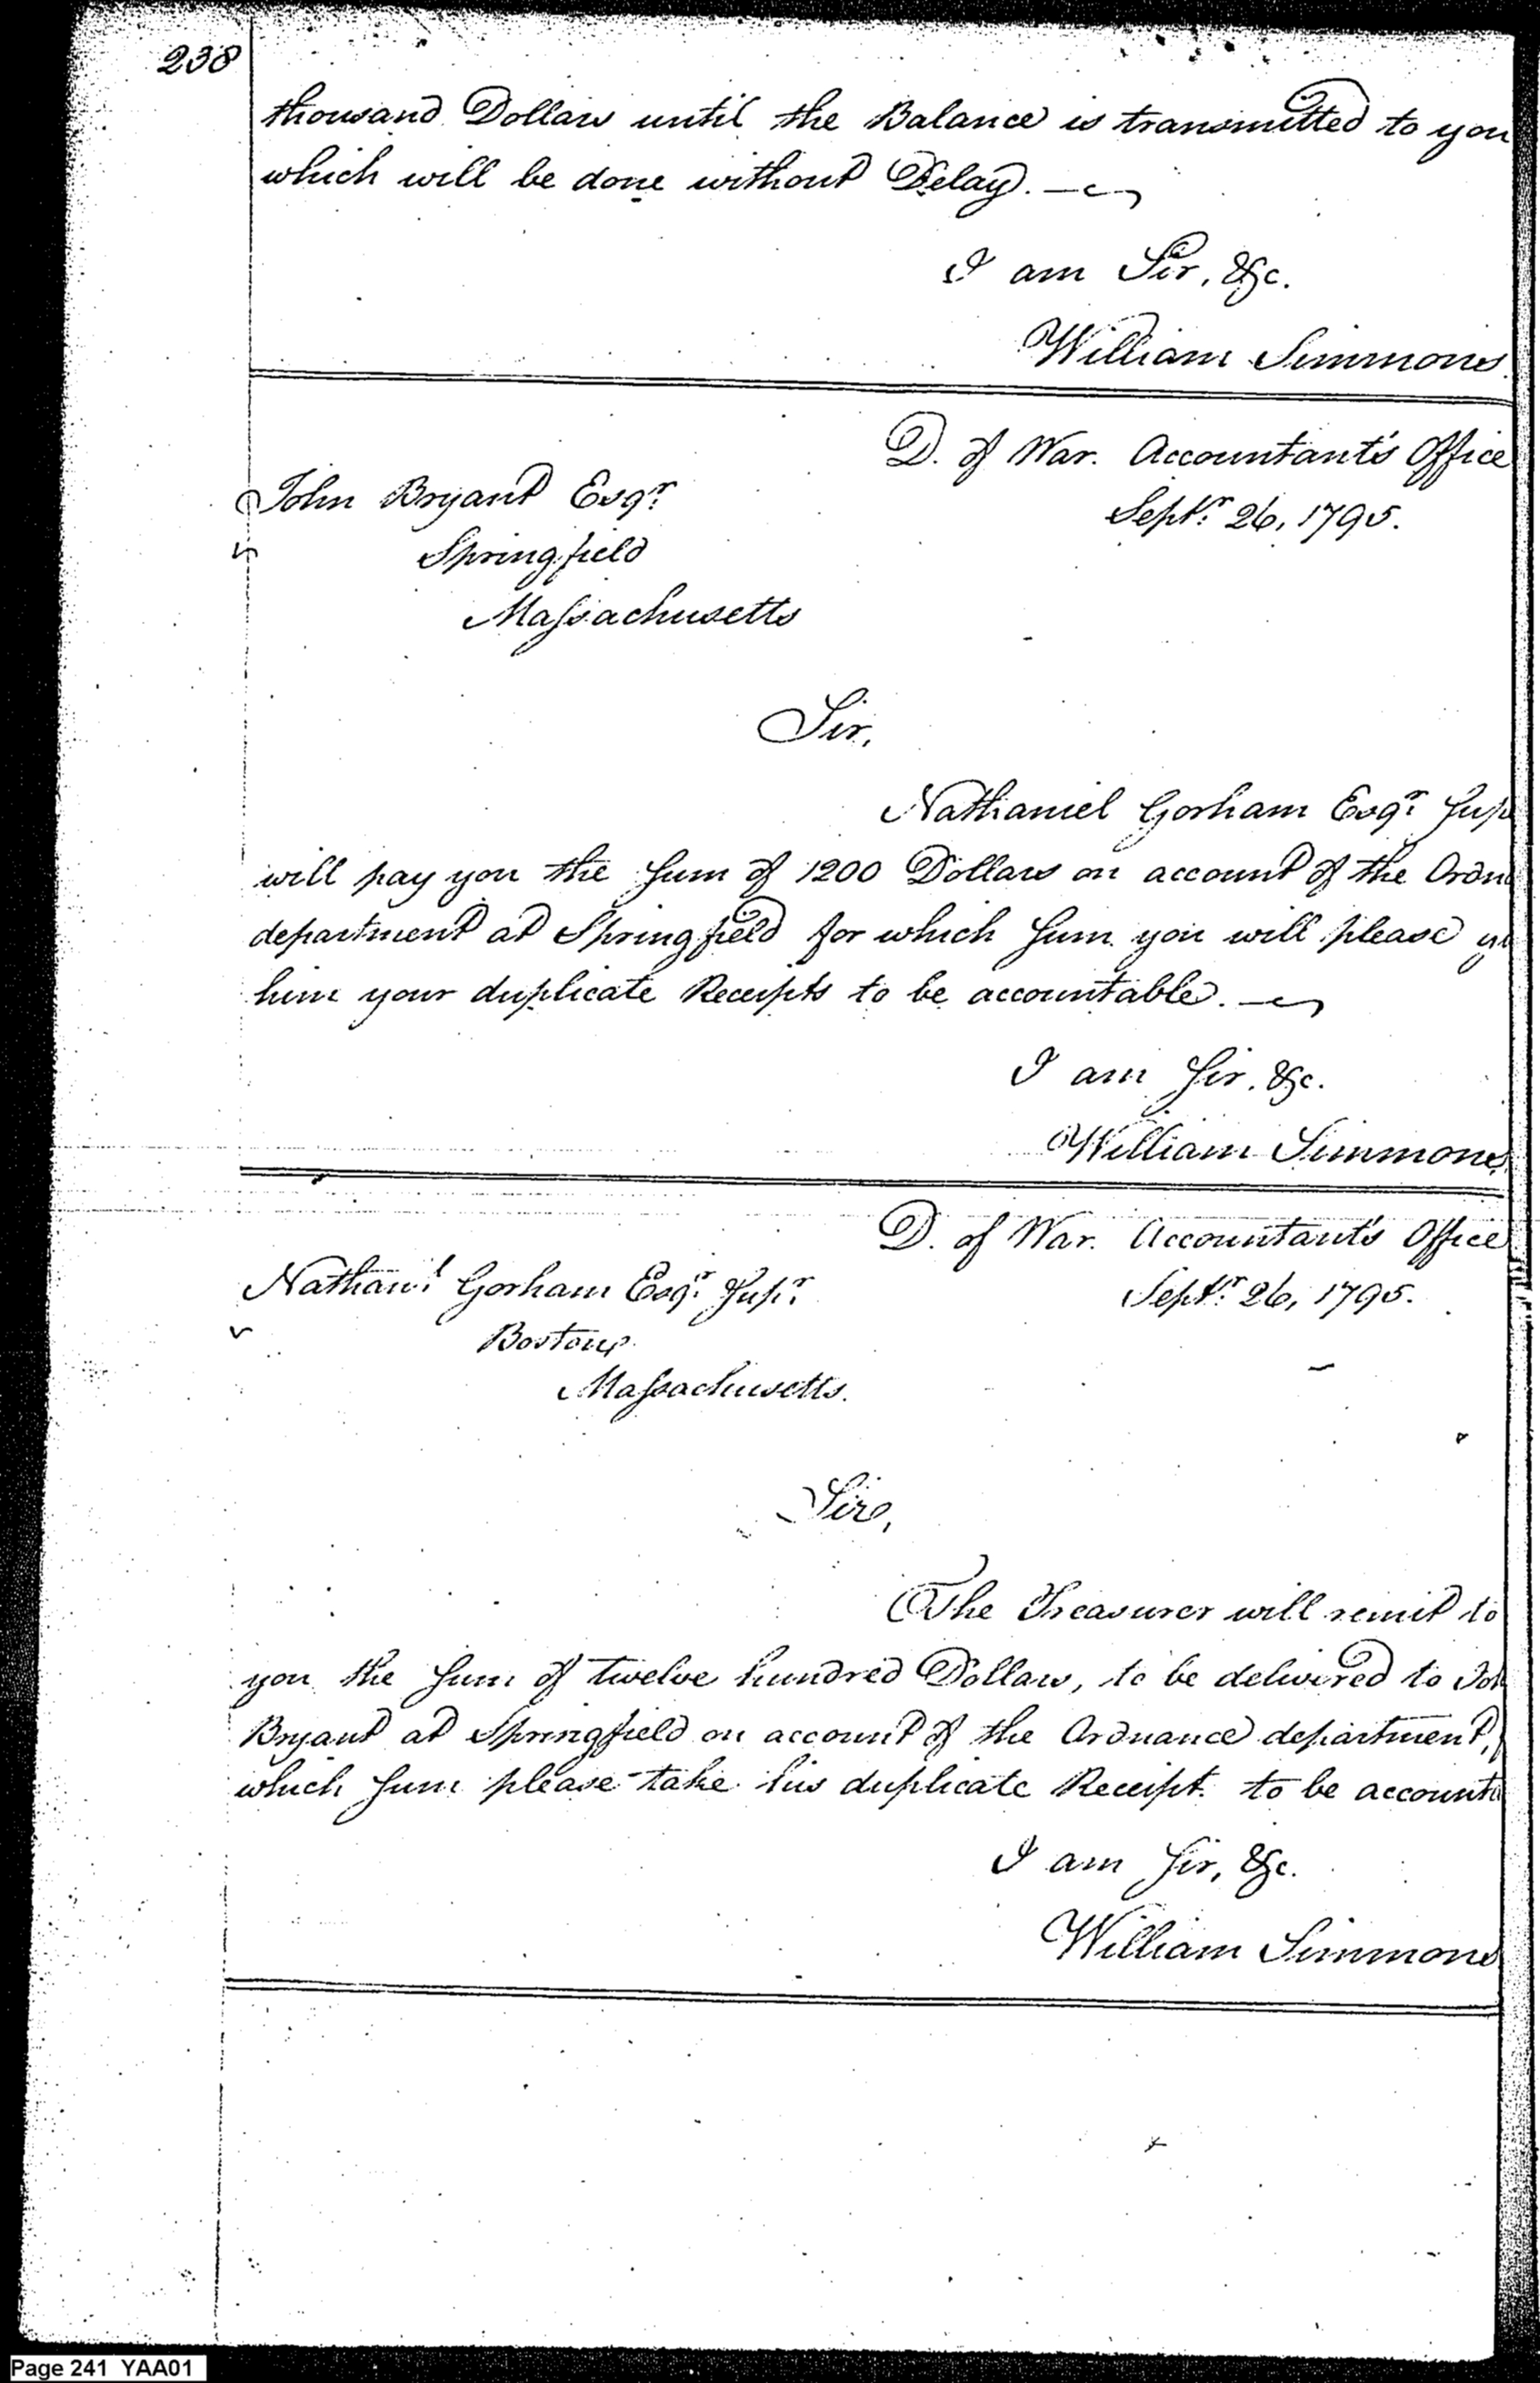 238
thousand Dollars until the Balance is transmitted to you
which will be done without Delay.
I am Sir, &c.
William Simmons
D. of War. Accountant's Office
John Bryant Esqr.
Septr. 26, 1795.
Springfield
Massachusetts
Sir,
Nathaniel Gorham Esqr. Sup
will pay you the Sum of 1200 Dollars on account of the Ordn
department at Springfield for which Sum you will please
him your duplicate Receipts to be accountable.
I am Sir, &c.
William Simmons
D. of War. Accountant's Office
Nathanl. Gorham Esqr. Supr.
Septr. 26, 1795.
Boston
Massachusetts.
Sir,
The Treasurer will remit to
you the Sum of twelve hundred Dollars, to be delivered to Joh
Bryant at Springfield on account of the Ordnance department,
which Sum please take his duplicate Receipt. to be account
I am Sir, &c.
William Simmons
Page 241 YAA01